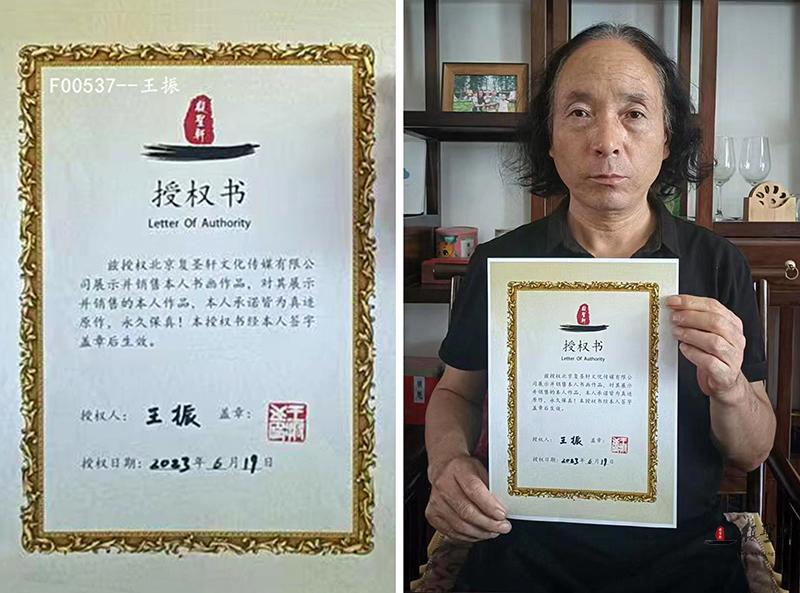 F00537--王振
復聖軒
授权书
Letter Of Authority
兹授权北京复圣轩文化传媒有限公
司展示并销售本人书画作品，对其展示
并销售的本人作品、本人承诺皆为真迹
原作，永久保真！本授权书经本人签字
盖章后生效。
授权人：王振 盖章：
授权日期：2023年6月19日
復聖軒
授权书
Letter Of Authority
兹授权北京复圣轩文化传媒有限公
司展示并销售本人书画作品，对其展示
并销售的本人作品、本人承诺皆为真迹
原作，永久保真！本授权书经本人签字
盖章后生效。
授权人：王振 盖章：
授权日期：2023年6月19日